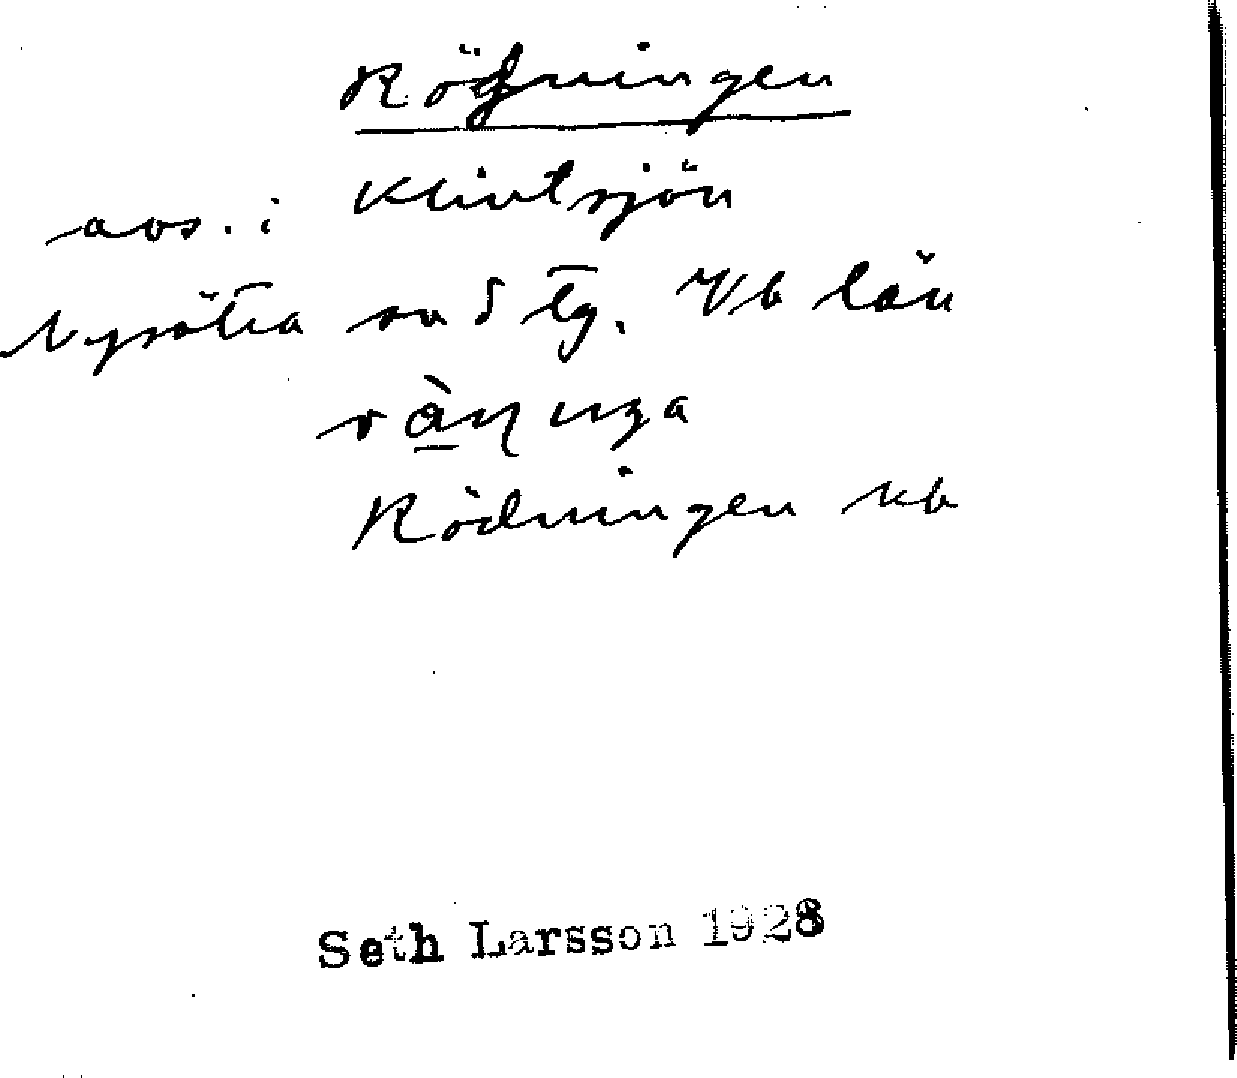 Rödningen
avs. i Klintsjön
Nysätra sn S tg. Vb län
Rödningen kb
Seth Larsson 1928